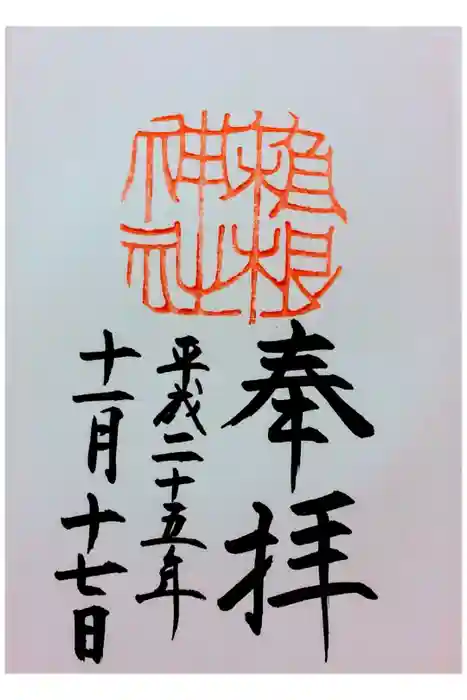 根
神社
奉拝
平成二十五年
十一月十七日